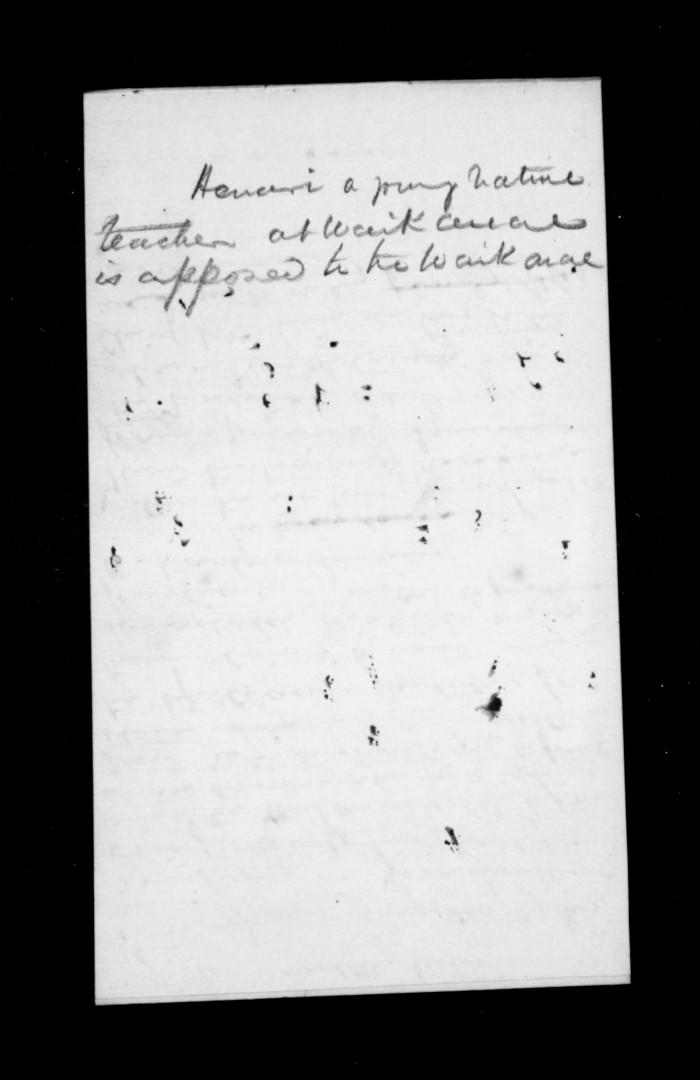 Henari a young native
teacher at Waikanae
is apposed to the Waikanae